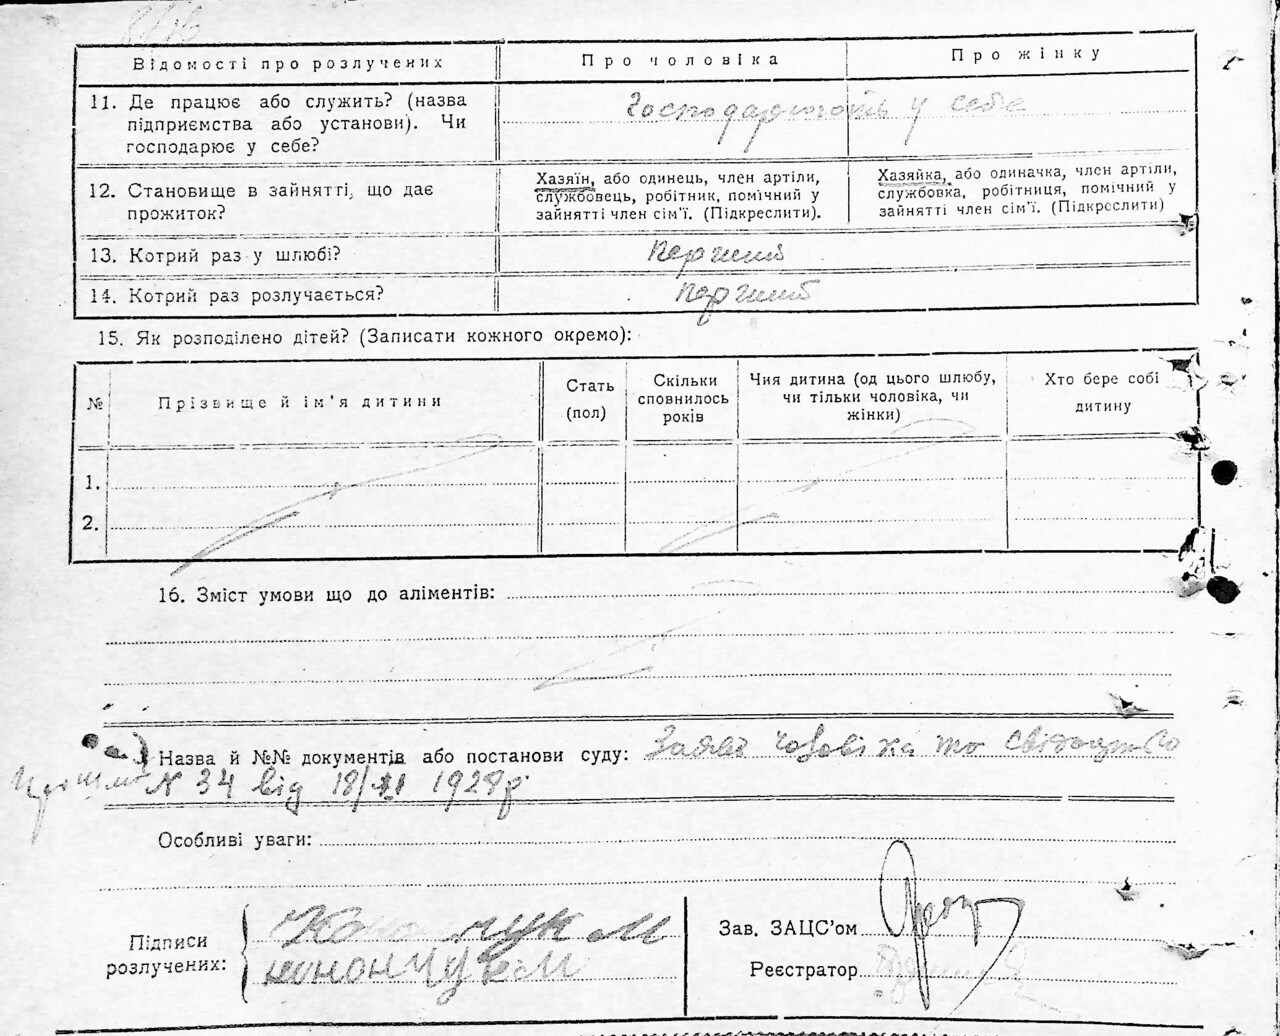 Відомості про розлучених
Про чоловіка
Про жінку
11. Де працює або служить? (назва
підприємства або установи). Чи
господарює у себе?
Господарюють у себе
12. Становище в зайнятті, що дає
прожиток?
Хазяїн, або одинець, член артіли,
службовець, робітник, помічний у
зайнятті член сім'ї. (Підкреслити).
Хазяйка, або одиначка, член артіли,
службовка, робітниця, помічний у
зайнятті член сім'ї. (Підкреслити)
13. Котрий раз у шлюбі?
перший
14. Котрий раз розлучається?
перший
15. Як розподілено дітей? (Записати кожного окремо):
№
Прізвище й ім'я дитини
Стать
(пол)
Скільки
сповнилось
років
Чия дитина (од цього шлюбу,
чи тільки чоловіка, чи
жінки)
Хто бере собі
дитину
1.
2.
16. Зміст умови що до аліментів:
Назва й №№ документів або постанови суду: Заява чоловіка то свідоцтво
N 34 від 18/XI 1928р
Особливі уваги:
Підписи
розлучених:
Конончук М
кононЧук М
Зав. ЗАЦС'ом
Реєстратор